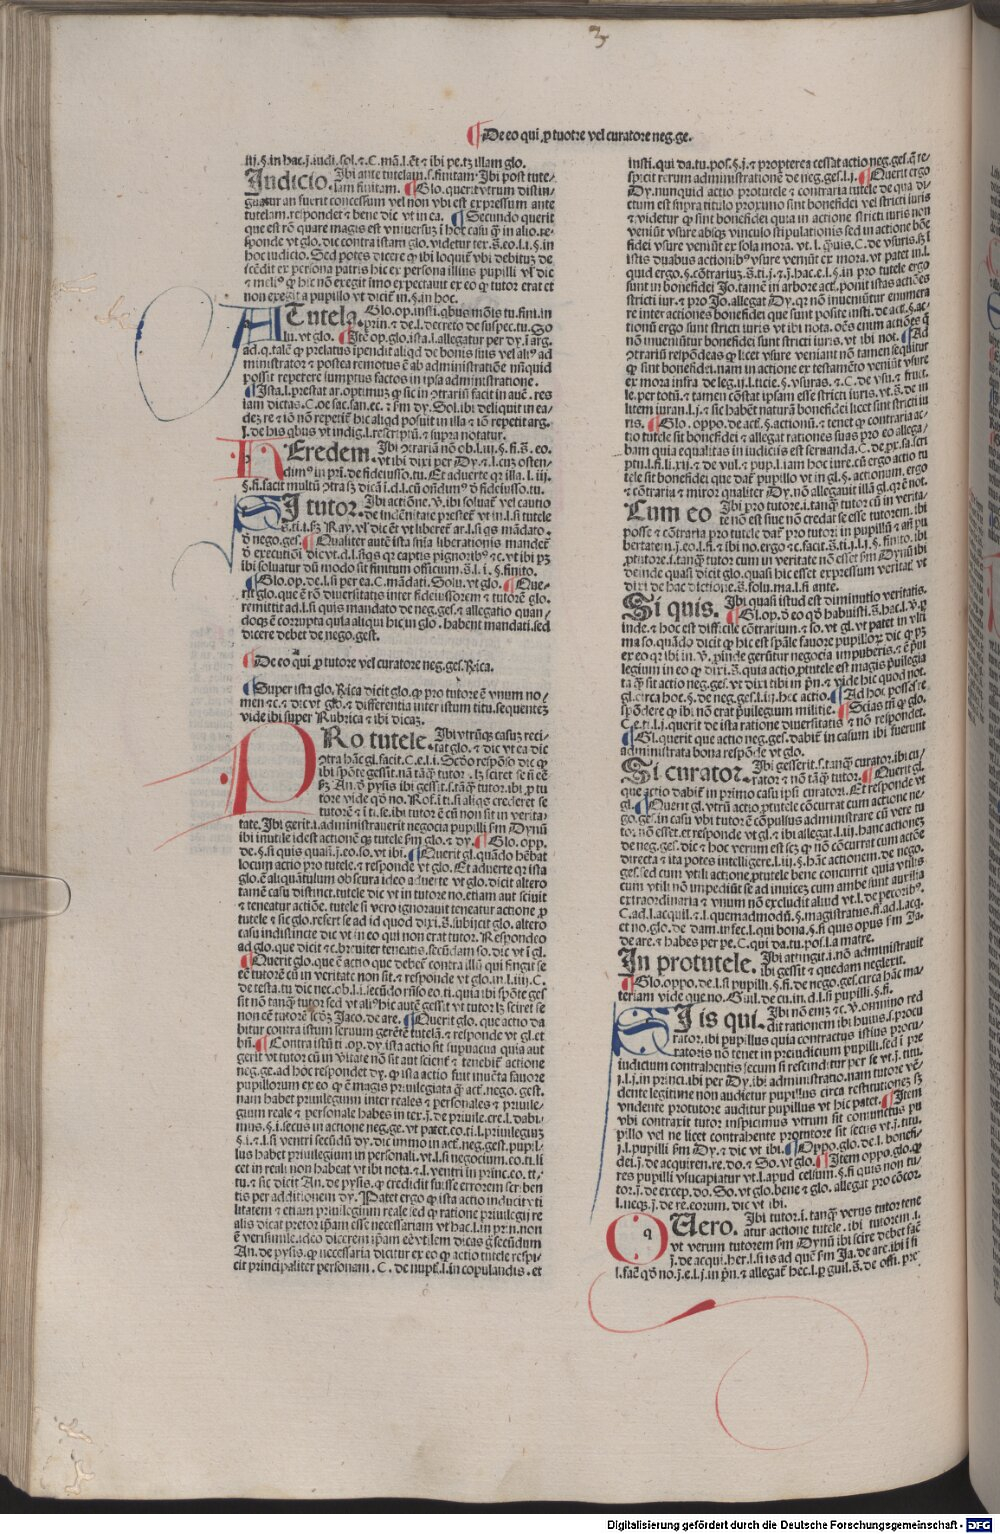 3
¶ De eo qui ꝓ tuotre vel curatore neg. ge.
iij. §. in hac. j. iudi. sol. ⁊. C. mā. l. ēt ⁊ ibi pe. tꝫ illam glo.
Iudicio. Ibi ante tutelam. s. finitam. Ibi post tute-
lam finitam. ¶ Glo. querit vtrum distin-
guatur an fuerit concessum vel non vbi est expressum ante
tutelam. respondet ⁊ bene dic vt in ea. ¶ Secundo querit
que est rō quare magis est vniuersuꝫ ī hoc casu ꝙ in alio. re-
sponde vt glo. dic contra istam glo. videtur tex. s. eo. l. i. §. in
hoc iudicio. Sed potes dicere ꝙ ibi loquit vbi debituꝫ de
scēdit ex persona patris hic ex persona illius pupilli vl dic
⁊ meliꝰ ꝙ hic nō exegit īmo expectauit ex eo ꝙ tutor erat et
non exegit a pupillo vt dicit in. §. in hoc.
A Tutela. Glo. op. insti. qbus mōis tu. fini. in
prin. ⁊ de. l. decreto de suspec. tu. So
lu. vt glo. ¶ Itē op. glo. ista. l. allegatur per dy. ī arg.
ad. q. talē ꝙ prelatus ipendit aliqd de bonis suis vel aliꝰ ad
ministrator ⁊ postea remotus ē ab administratiōe nūquid
possit repetere sumptus factos in ipsa administratione.
¶ Ista. l. prestat ar. optimuꝫ ꝙ sic in ꝯtrariū facit in auē. res
iam dictas. C. de sac. san. ec. ⁊ fm dy. Sol. ibi deliquit in ea-
deꝫ re ⁊ iō nō repetit hic aliqd posuit in illa ⁊ iō repetit arg.
j. de his qbus vt indig. l. rescriptū. ⁊ supra notatur.
H Eredem. Ibi ꝯtrariū nō ob. l. iij. §. fi. s̄. eo.
vt ibi dixi per Dy. ⁊ l. cuꝫ osten-
dimꝰ in pri. de fideiusso. tu. Et aduerte qr illa. l. iij.
§. fi. facit multū ꝯtra sꝫ dicā ī. d. l. cū ondimꝰ ō fideiusso. tu.
S I tutor. Ibi actione. v. ibi soluat vel cautio
de indēnitate prestet vt in. l. si tutele
s. ti. i. sꝫ Ray. vl dic ēt vt liberet ar. l. si qs mādato.
ō nego. ges. ¶ Qualiter autē ista sn̄ia liberationis mandet
ō executiōi dic vt. d. l. si qs qr captis pignoribꝰ ⁊ c. vt ibi pꝫ
ibi soluatur dū modo sit finitum officium. s. l. i. §. finito.
¶ Glo. op. de. l. si per ea. C. mādati. Solu. vt glo. ¶ Que-
rit glo. que ē rō diuersitatis inter fideiussorem ⁊ tutorē glo.
remittit ad. l. si quis mandato de neg. ges. ⁊ allegatio quan-
doqꝫ ē corrupta quia aliqui hic in glo. habent mandati. sed
dicere debet de nego. gest.
¶ De eo qui ꝓ tutore vel curatore neg. ges. Rica.
¶ Super ista glo. Rica dicit glo. ꝙ pro tutore ē vnum no-
men ⁊ c. ⁊ dic vt glo. ⁊ differentia inter istum titu. sequenteꝫ
vide ibi super Rubrica ⁊ ibi dicaꝫ.
P Ro tutele. Ibi vtrūqꝫ casuꝫ reci-
tat glo. ⁊ dic vt ea dic
ꝯtra hāc gl. facit. C. e. l. i. Scdo respōso dic ꝙ
ibi spōte gessit. nā tāqꝫ tutor. Iꝫ sciret se nō eē
sꝫ An. ō pysis ibi gessit. s. tāqꝫ tutor. ibi. ꝓ tu
tore vide qd no. Rof. i. ti. si aliqs crederet se
tutorē ⁊ i. ti. se. ibi tutor ē cū non sit in verita-
tate. Ibi gerit. i. administrauerit negocia pupilli fm Dynū
ibi inutile idest actionē qꝫ tutele fm glo. ⁊ dy. ¶ Glo. opp.
de. §. si quis quasi. j. eo. so. vt ibi. ¶ Querit gl. quādo hēbat
locum actio pro tutele. ⁊ responde vt glo. Et aduerte qr ista
glo. ē aliquātulum obscura ideo aduerte vt glo. dicit altero
tamē casu distinct. tutele dic vt in tutore no. etiam aut sciuit
⁊ teneatur actiōe. tutele si vero ignorauit teneatur actione ꝓ
tutele ⁊ sic glo. refert se ad id quod dixi. s̄. subijcit glo. altero
casu indistincte dic vt in eo qui non erat tutor. Respondeo
ad glo. que dicit ⁊ c. breuiter teneatis. secūdam so. dic vt ī gl.
¶ Querit glo. que ē actio que debet contra illū qui fingit se
eē tutorē cū in veritate non sit. ⁊ responde vt glo. in. l. iiij. C.
de testa. tu. dic nec. ob. l. i. secūdo rn̄so eo. ti. quia ibi spōte ges
sit nō tanqꝫ tutor sed vt aliꝰ hic autē gessit vt tutor Iꝫ sciret se
non eē tutorē scdꝫ Iaco. de are. ¶ Querit glo. que actio da
bitur contra istum seruum gerētē tutelā. ⁊ responde vt gl. et
bn̄. ¶ Contra istū ti. op. dy. ista actio sit supuacua quia aut
gerit vt tutor cū in vitate nō sit aut scient ⁊ tenebit actione
neg. ge. ad hoc respondet dy. ꝙ ista actio fuit inuēta fauore
pupillorum ex eo ꝙ ē magis priuilegiata ꝙ act. nego. gest.
nam habet priuilegium inter reales ⁊ personales ⁊ priuile-
gium reale ⁊ personale habes in tex. j. de priuile. cre. l. dabi-
mus. §. i. secus in actione neg. ge. vt patet. eo. ti. l. priuilegiuꝫ
§. i. ⁊. l. si ventri secūdū dy. dic immo in act. neg. gest. pupil-
lus habet priuilegium in personali. vt. l. si negocium. eo. ti. li
cet in reali non habeat vt ibi nota. ⁊. l. ventri in princ. eo. tt.
tu. ⁊ sic dicit An. de pysis. ꝙ credidit fuisse errorem scriben
tis per additionem dy. Patet ergo ꝙ ista actio inducit vti
litatem ⁊ etiam priuilegium reale sed ꝙ ratione priuilegij re
alis dicat pretor ipam esse necessariam vt hac. l. in prin. non
ē verisimile. ideo dicerem ipam eē vtilem dicas ꝙ secūdum
An. de pysis. ꝙ necessaria dicitur ex eo ꝙ actio tutele respi-
cit principaliter personam. C. de nupt. l. in copulandis. et
insti. qui da. tu. pos. §. j. ⁊ propterea cessat actio neg. ges. q̄ re-
spicit rerum administrationē de neg. ges. l. j. ¶ Querit ergo
Dy. nunquid actio protutele ⁊ contraria tutele de qua di-
ctum est supra titulo proximo sint bonefidei vel stricti iuris
⁊ videtur ꝙ sint bonefidei quia in actione stricti iuris non
veniūt vsure absqꝫ vinculo stipulationis sed in actione bōe
fidei vsure veniūt ex sola mora. vt. l. quis. C. de vsuris. sꝫ ī
istis duabus actionibꝰ vsure veniūt ex mora. vt patet in. l.
quid ergo. §. cōtrariuꝫ. s̄. ti. j. ⁊. j. hac. e. l. §. in pro tutele ergo
sunt in bonefidei Io. tamē in arbore act. ponit istas actiōes
stricti iur. ⁊ pro Io. allegat Dy. qr nō inueniūtur enumera
te inter actiones bonefidei que sunt posite insti. de act. §. ac-
tionū ergo sunt stricti iuris vt ibi nota. oēs enim actiōes q̄
nō inueniūtur bonefidei sunt stricti iuris. vt ibi not. ¶ Ad
ꝯtrariū relpōdeas ꝙ licet vsure veniant nō tamen sequitur
ꝙ sint bonefidei. nam in actione ex testamēto veniūt vsure
ex mora infra de leg. ij. l. ticie. §. vsuras. ⁊. C. de vsu. ⁊ fruct.
le. per totū. ⁊ tamen cōstat ipsam esse stricti iuris. vt. s̄. de in
litem iuran. l. j. ⁊ sic habēt naturā bonefidei licet sint stricti iu
ris. ¶ Glo. oppo. de act. §. actionū. ⁊ tenet ꝙ contraria ac-
tio tutele sit bonefidei ⁊ allegat rationes suas pro eo allega-
bam quia equalitas in iudiciis est seruanda. C. de ꝓx. sa. scri
ptu. l. fi. li. xij. ⁊ de vul. ⁊ pup. l. iam hoc iure. cū ergo actio tu
tele sit bonefidei que dat pupillo vt in gl. §. actionum. ergo
⁊ cōtraria ⁊ miror qualiter Dy. nō allegauit illā gl. qr ē not.
Cum eo Ibi pro tutore. i. tanqꝫ tutor cū in verita-
te nō est siue nō credat se esse tutorem. ibi
posse ⁊ cōtraria pro tutele dat pro tutori in pupillū ⁊ añ pu
bertatem. j. eo. l. fi. ⁊ ibi no. ergo ⁊ c. facit. s̄. ti. j. l. j. §. finito. ibi
ꝓtutore. i. tanqꝫ tutor cum in veritate nō esset fm Dynū ibi
deinde quasi dicit glo. quasi hic esset expressum veritat vt
dixi de hac dictione. s̄. solu. ma. l. fi ante.
Si quis. Ibi quasi istud est diminutio veritatis.
¶ Gl. op. ō eo qd habuisti. s̄. hac. l. v. ꝑ
inde. ⁊ hoc est difficile cōtrarium. ⁊ so. vt gl. vt patet in vlti
ma so. quādo dicit ꝙ hic est spāle fauore pupilloꝝ dic ꝙ pꝫ
ex eo qr ibi in. v. ꝓinde gerūtur negocia impuberis. ⁊ ē prī
legium in eo ꝙ dixi. s̄. quia actio ꝓtutele est magis puilegia
ta ꝙ sit actio neg. ges. vt dixi tibi in pn̄. ⁊ vide hic quod not.
gl. circa hoc. §. de neg. ges. l. iij. hec actio. ¶ Ad hoc posses re
spōdere ꝙ ibi nō erat puilegium militie. ¶ Scias tn̄ ꝙ glo.
C. e. ti. l. j. querit de ista ratione diuersitatis ⁊ nō respondet.
¶ Gl. querit que actio neg. ges. dabit in casum ibi fuerunt
administrata bona respōde vt glo.
Si curator. Ibi gesserit. s. tanqꝫ curator. ibi cu-
rator ⁊ nō tāqꝫ tutor. ¶ Querit gl.
que actio dabit in primo casu ipsi curatori. Et responde vt
gl. ¶ Querit gl. vtrū actio ꝓtutele cōcurrat cum actione ne-
go. ges. in casu vbi tutor ē cōpulsus administrare cū vere tu
tor nō esset. et responde vt gl. ⁊ ibi allegat. l. iij. hanc actioneꝫ
de neg. ges. dic ⁊ hoc verum est scꝫ ꝙ nō cōcurrat cum actōe
directa ⁊ ita potes intelligere. l. iij. §. hāc actionem. de nego.
ges. sed cum vtili actione ꝓtutele bene concurrit quia vtilis
cum vtili nō impediūt se ad inuiceꝫ cum ambe sunt auxilia
extraordinaria ⁊ vnum nō excludit aliud vt. l. j. de pecoribꝰ.
C. ad. l. acquil. ⁊. l. quemadmodū. §. magistratus. ff. ad. l. acq.
et no. glo. de dam. infec. l. qui bona. §. fi quis opus fm Ja.
de are. ⁊ habes per pe. C. qui da. tu. pos. l. a matre.
In protutele. Ibi attingit. i. nō administrauit
ibi gessit ⁊ quedam neglexit.
¶ Glo. oppo. de. l. si pupilli. §. fi. de nego. ges. circa hāc ma-
teriam vide que no. Guil. de cu. in. d. l. si pupilli. §. fi.
S I is qui. Ibi nō enīꝫ ⁊ c. v. omnino red
dit rationem ibi huius. s. procu
rator. ibi pupillus quia contractus istius procu
ratoris nō tenet in preiudicium pupilli. sed ī pre
iudicium contrahentis secum si rescinditur per se vt. j. titu.
j. l. j. in princi. ibi per Dy. ibi administratio. nam tutore vē-
dente legitime non audietur pupillus circa restitutioneꝫ sꝫ
vndente protutore auditur pupillus vt hic patet. ¶ Item
vbi contraxit tutor inspicimus vtrum sit coniunctus pu
pillo vel ne licet contrahente protutore sit secus vt. j. titu.
j. l. pupilli fm Dy. ⁊ dic vt ibi. ¶ Oppo. glo. de. l. bonefi-
dei. j. de acquiren. re. do. ⁊ So. vt glo. ¶ Item oppo. glo. ꝙ
res pupilli vsucapiatur vt. l. apud celsum. §. fi quis non tu-
tor. j. de excep. do. So. vt glo. bene ⁊ glo. allegat pro cōcor.
l. necqꝫ. j. de re. eorum. dic vt ibi.
Q Uero. Ibi tutor. i. tanqꝫ verus tutor tene
atur actione tutele. ibi tutorem. i.
vt verum tutorem fm Dynū ibi scire debet faē
j. de acqui. her. l. si is ad quē fm Ja. de are. ibi ī fi
l. faē qd no. j. e. l. j. in pn̄. ⁊ allegat hec. l. ꝑ guil. s̄. de offi. pre
Digitalisierung gefördert durch die Deutsche Forschungsgemeinschaft - DFG